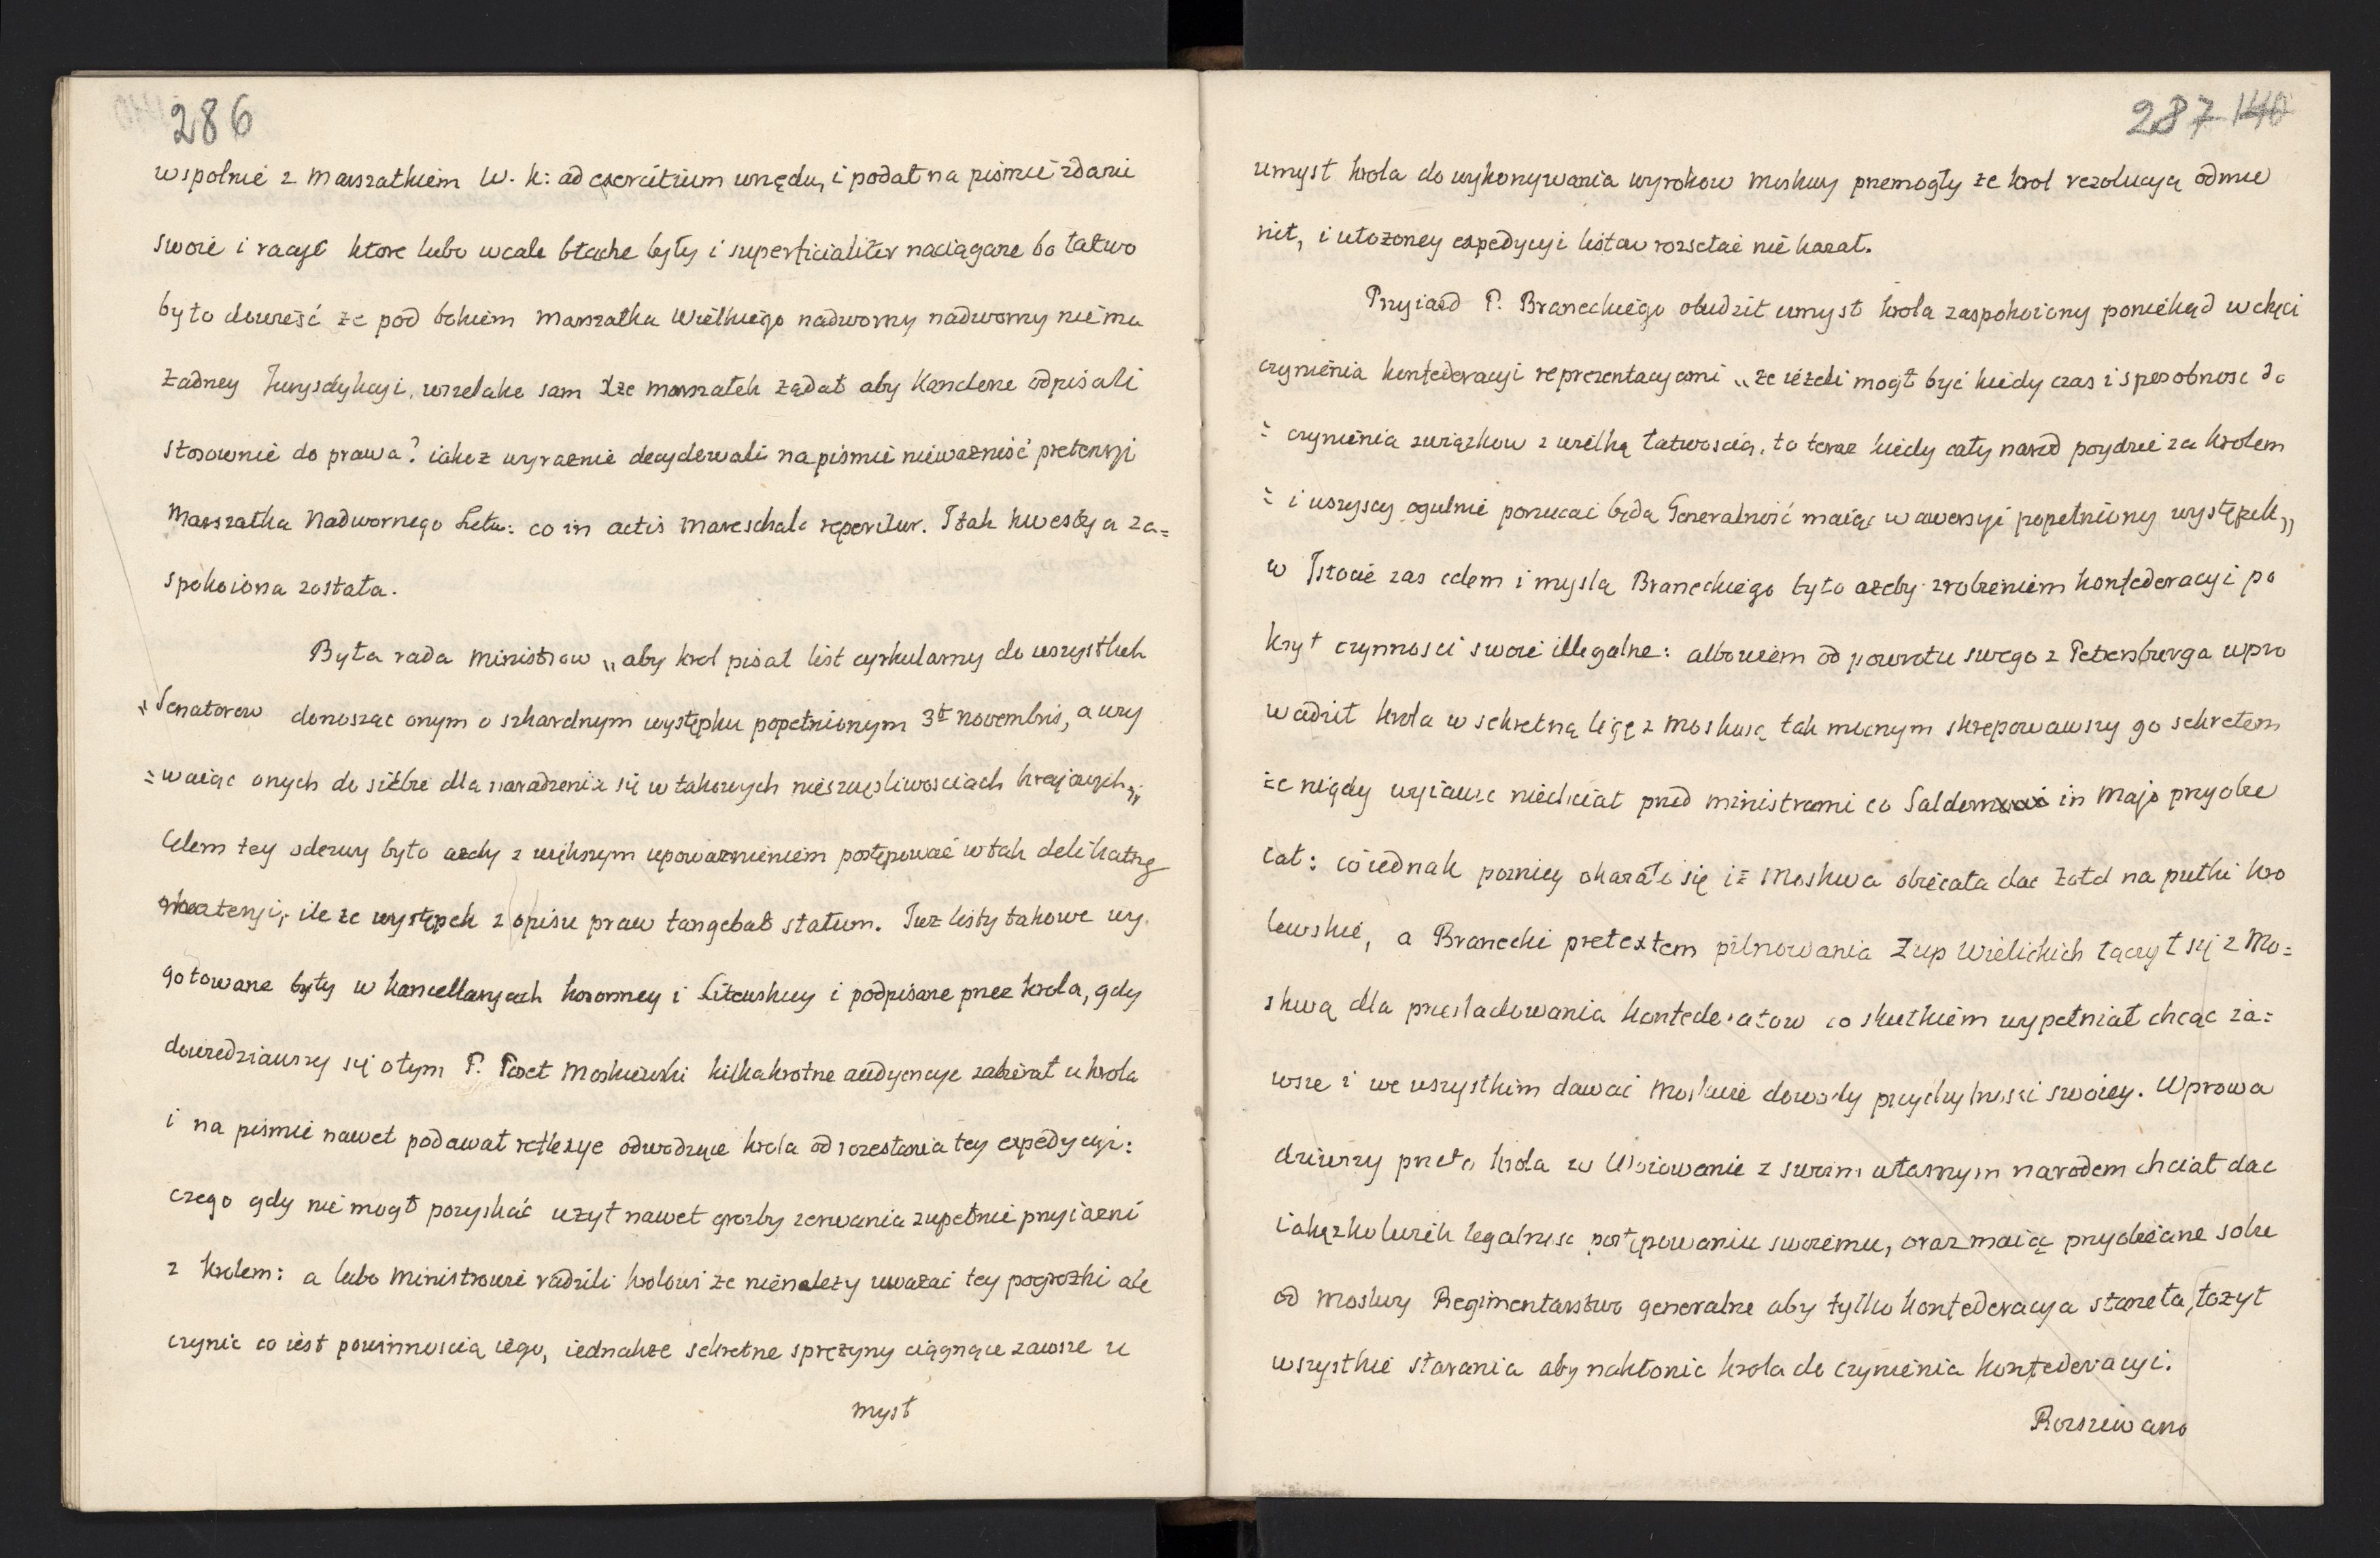 286
wspolnie z Marszałkiem W. k: ad exercitium urzędu, i podał na pismie zdanie
swoie i racye ktore lubo wcale błache były i superficialiter naciągane bo łatwo
było dowieść że pod bokiem Marszałka Wielkiego nadworny nadworny niema
żadney Jurysdykcyi, wszelako sam Xże Marszałek żądał aby Kanclerze odpisali
stosownie do prawa? iakoż wyraznie decydowali na pismie nieważność pretensyi
Marszałka Nadwornego Litw: co in actis Mareschalc reperitur. I tak kwestya za=
spokoiona została.
Była rada Ministrow „aby krol pisał list cyrkularny do wszystkich
„Senatorow donosząc onym o szkaradnym występku popełnionym 3tt novembris, a wzy
=waiąc onych do siebie dla naradzenia się w takowych nieszczęsliwosciach krajowych„
Celem tey odezwy było ażeby z większym upoważnieniem postępować w tak delikatney
materyi, ile że występek z opisu praw tangebat statum. Juz listy takowe wy
gotowane były w kancellaryach koronney i Litewskiey i podpisane przez krola, gdy
dowiedziawszy się o tym P. Poseł Moskiewski kilkakrotne audyencye zabierał u krola
i na pismie nawet podawał reflexye odwodzące krola od rozesłania tey expedycyi:
czego gdy nie mogł pozyskać użył nawet grozby zerwania zupełnie przyiazni
z krolem: a lubo Ministrowie radzili krolowi że nienależy uważać tey pogrożki ale
czynic co iest powinnoscią iego, iednakże sekretne sprężyny ciągnące zawsze u
mysł
287 140
umysł krola do wykonywania wyrokow Moskwy przemogły że krol rezolucyą odmie
nił, i ułożoney expedycyi listow rozsełać nie kazał.
Przyiazd P. Braneckiego obudził umysł krola zaspokoiony poniekąd w chęci
czynienia konfederacyi reprezentacyami „że ieżeli mogł być kiedy czas i sposobnosc do
= czynienia związkow z wielką łatwoscią, to teraz kiedy cały narod poydzie za krolem
= i wszyscy ogulnie porzucać będą Generalność maiąc w awersyi popełniony występek„
w Istocie zas celem i myslą Braneckiego było ażeby zrobieniem konfederacyi po
krył czynnosci swoie illegalne: albowiem od powrotu swego z Petersburga wpro
wadził krola w sekretną ligę z Moskwą tak mocnym skrępowawszy go sekretem
że nigdy wyiawic niechciał przed ministrami co Saldern in Majo przyobie
cał: co iednak pozniey okazało się iż Moskwa obiecała dac żołd na pułki kro
lewskie, a Branecki pretextem pilnowania Żup Wielickich łączył się z Mo=
skwą dla przesladowania konfederatow co skutkiem wypełniał chcąc za=
wsze i we wszystkim dawać Moskwie dowody przychylnosci swoiey. Wprowa
dziwszy przeto krola w Woiowanie z swoim własnym narodem chciał dac
iakązkolwiek legalnosc postępowaniu swoiemu, oraz maiąc przyobiecane sobie
od Moskwy Regimentarstwo generalne aby tylko konfederacya staneła, łozył
wszystkie starania aby nakłonic krola do czynienia konfederacyi.
Rozsiewano